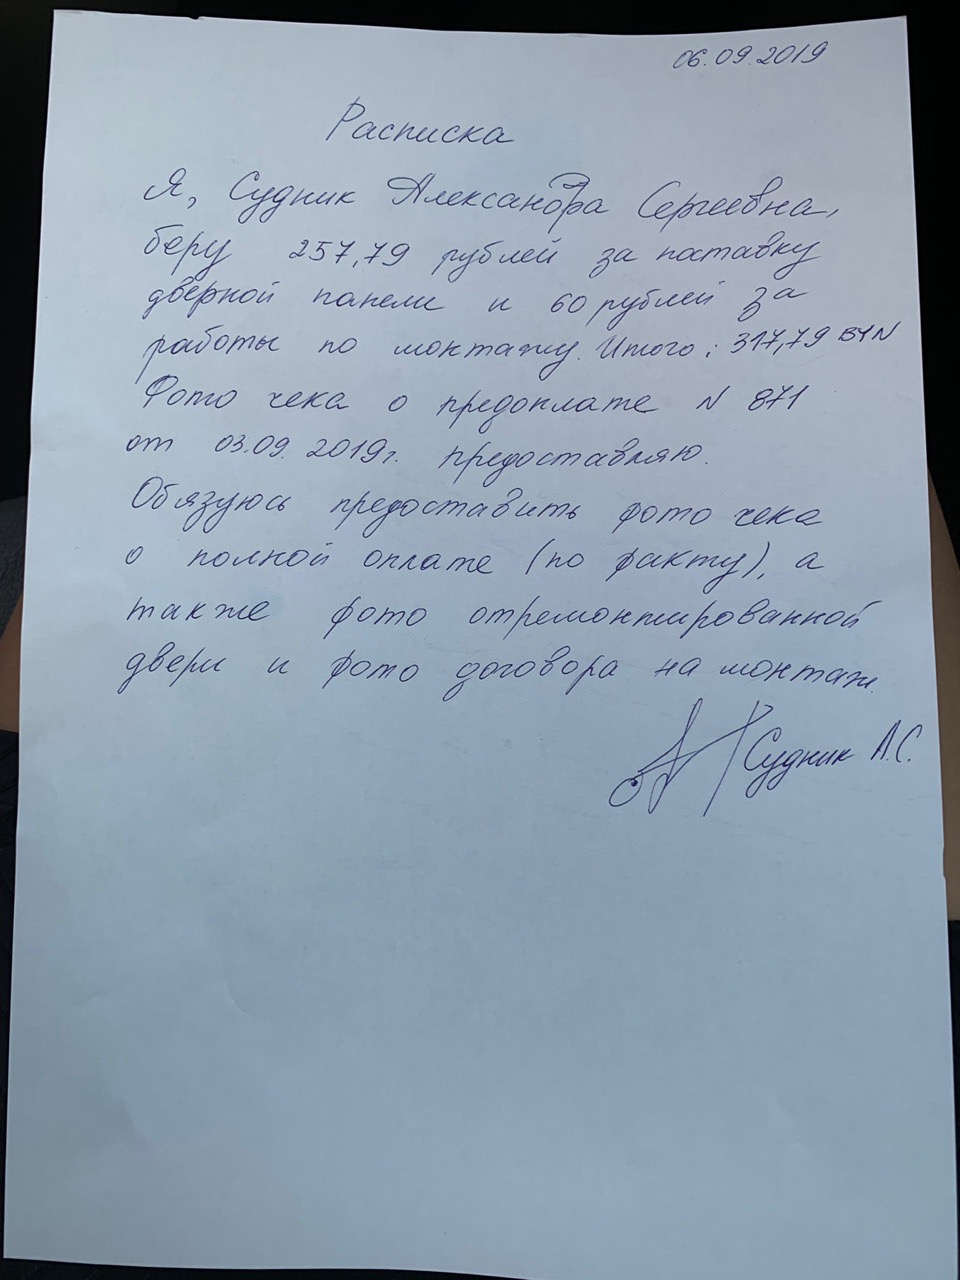 06.09.2019
Расписка
Я, Судник Александра Сергеевна,
беру 257,79 рублей за поставку
дверной панели и 60 рублей за
работы по монтажу. Итого: 317,79 BYN
Фото чека о предоплате N 871
от 03.09.2019г. предоставляю.
Обязуюсь предоставить фото чека
о полной оплате (по факту), а
также фото отремонтированной
двери и фото договора на монтаж.
Судник А.С.